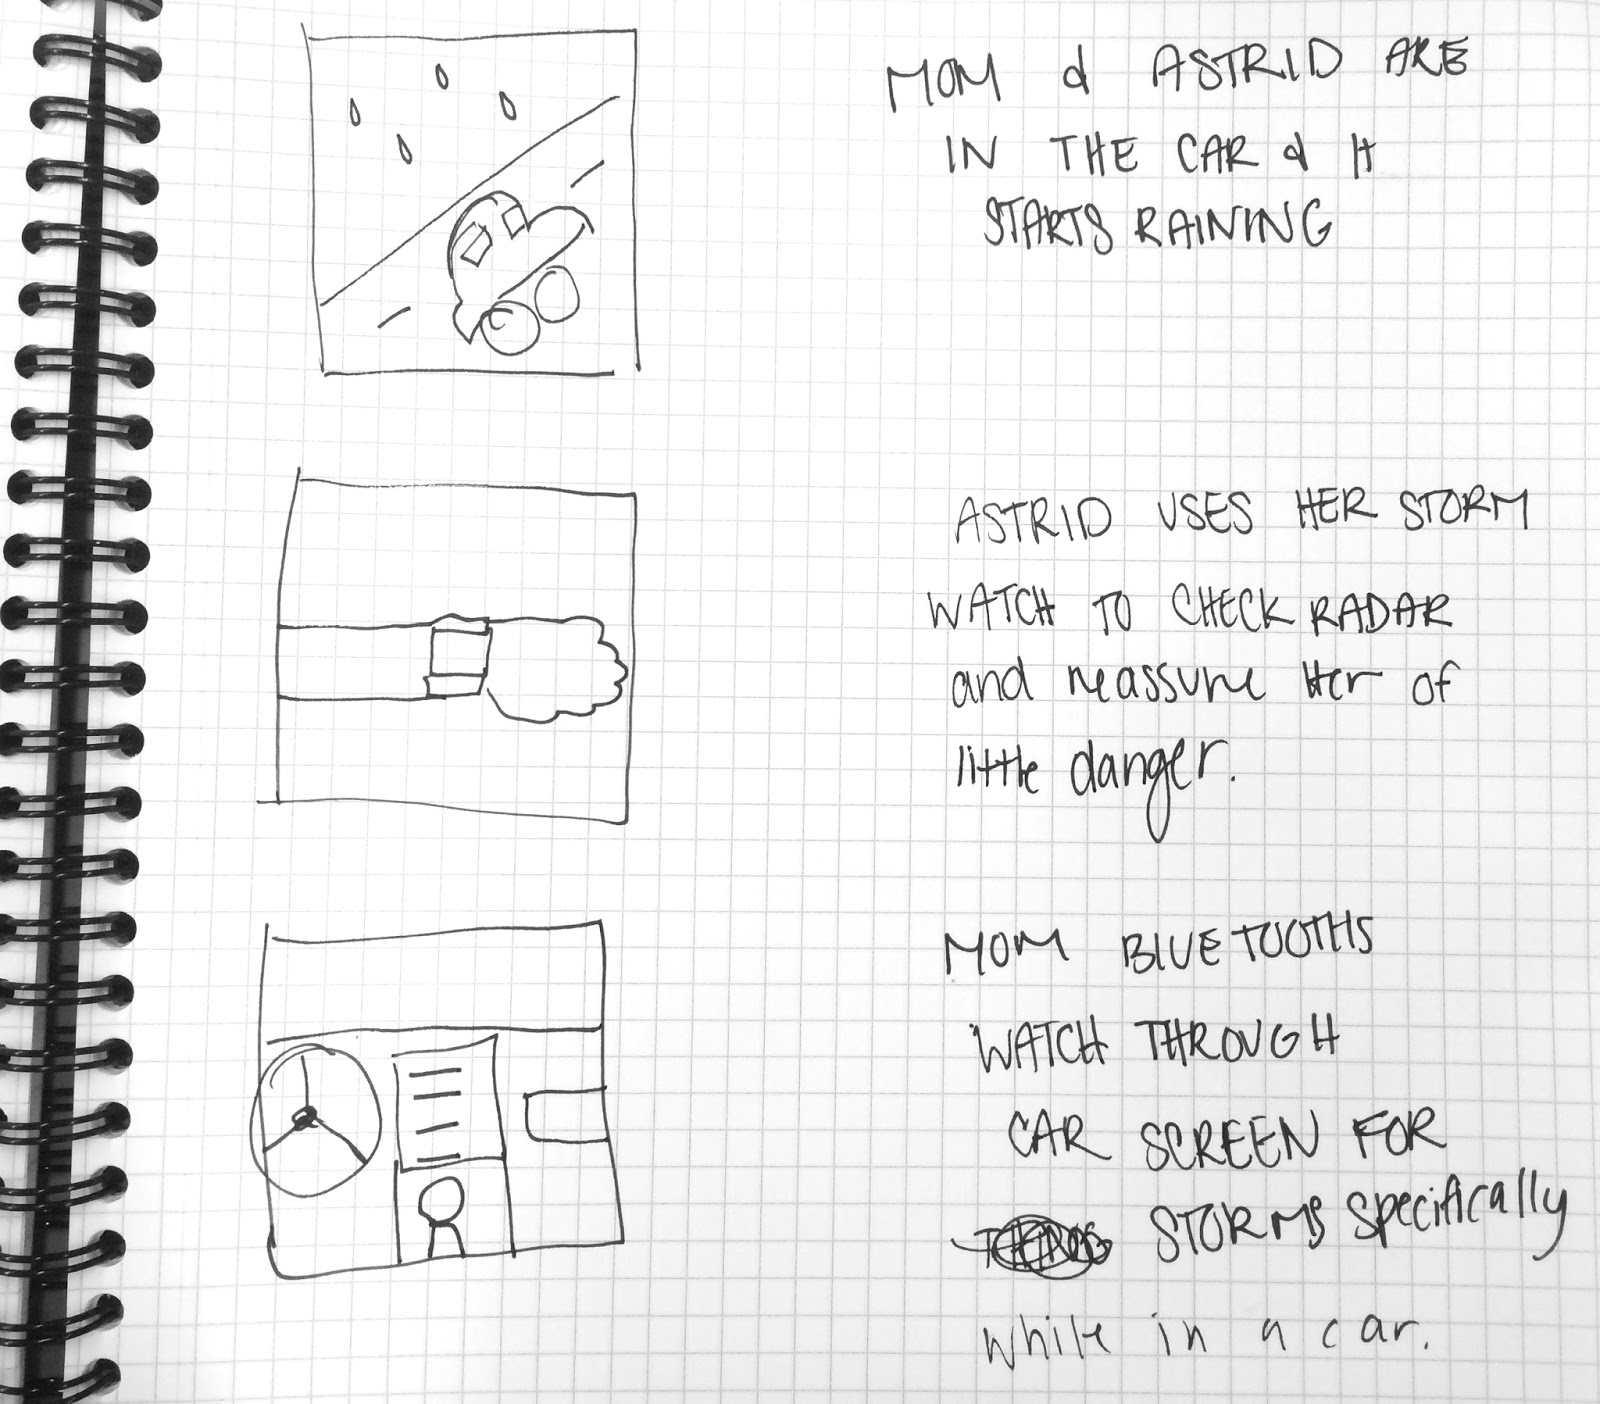 MOM & ASTRID ARE
IN THE CAR & it
STARTS RAINING
ASTRID USES HER STORM
WATCH TO CHECK RADAR
and reassure Her of
little danger.
MOM BLUETOOTHS
WATCH THROUGH
CAR SCREEN FOR
STORMS specifically
while in a car.